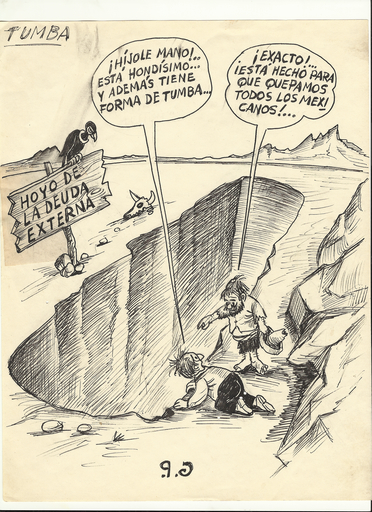 TUMBA
¡HÍJOLE MANO!..
ESTÁ HONDÍSIMO...
Y ADEMÁS TIENE
FORMA DE TUMBA...
¡EXACTO!...
¡ESTÁ HECHO PARA
QUE QUEPAMOS
TODOS LOS MEXI
CANOS!...
HOYO DE
LA DEUDA
EXTERNA